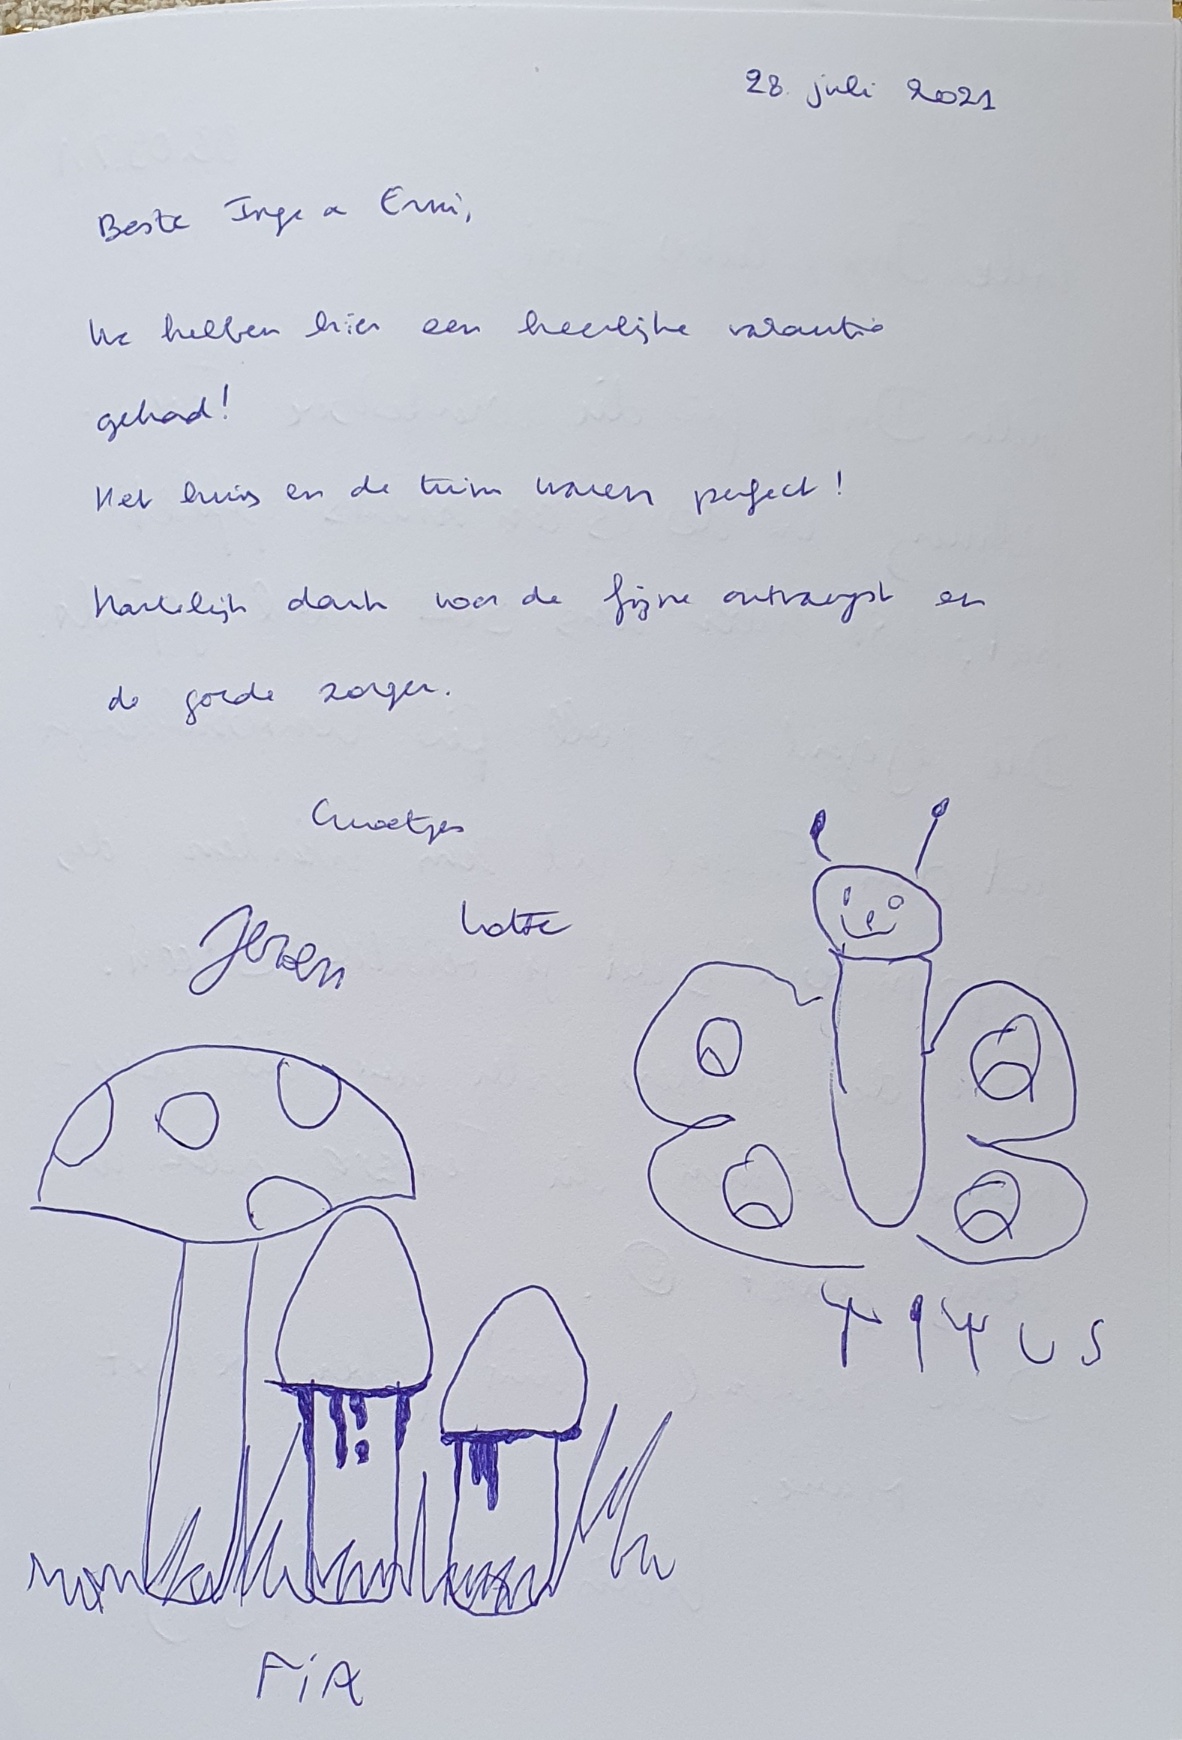 28 juli 2021
Beste Inge & Erni,
We hebben hier een heerlijke vakantie
gehad!
Het huis en de tuin waren perfect!
Hartelijk dank voor de fijne ontvangst en
de goede zorgen.
Groetjes
Jeroen Lotte
FiA